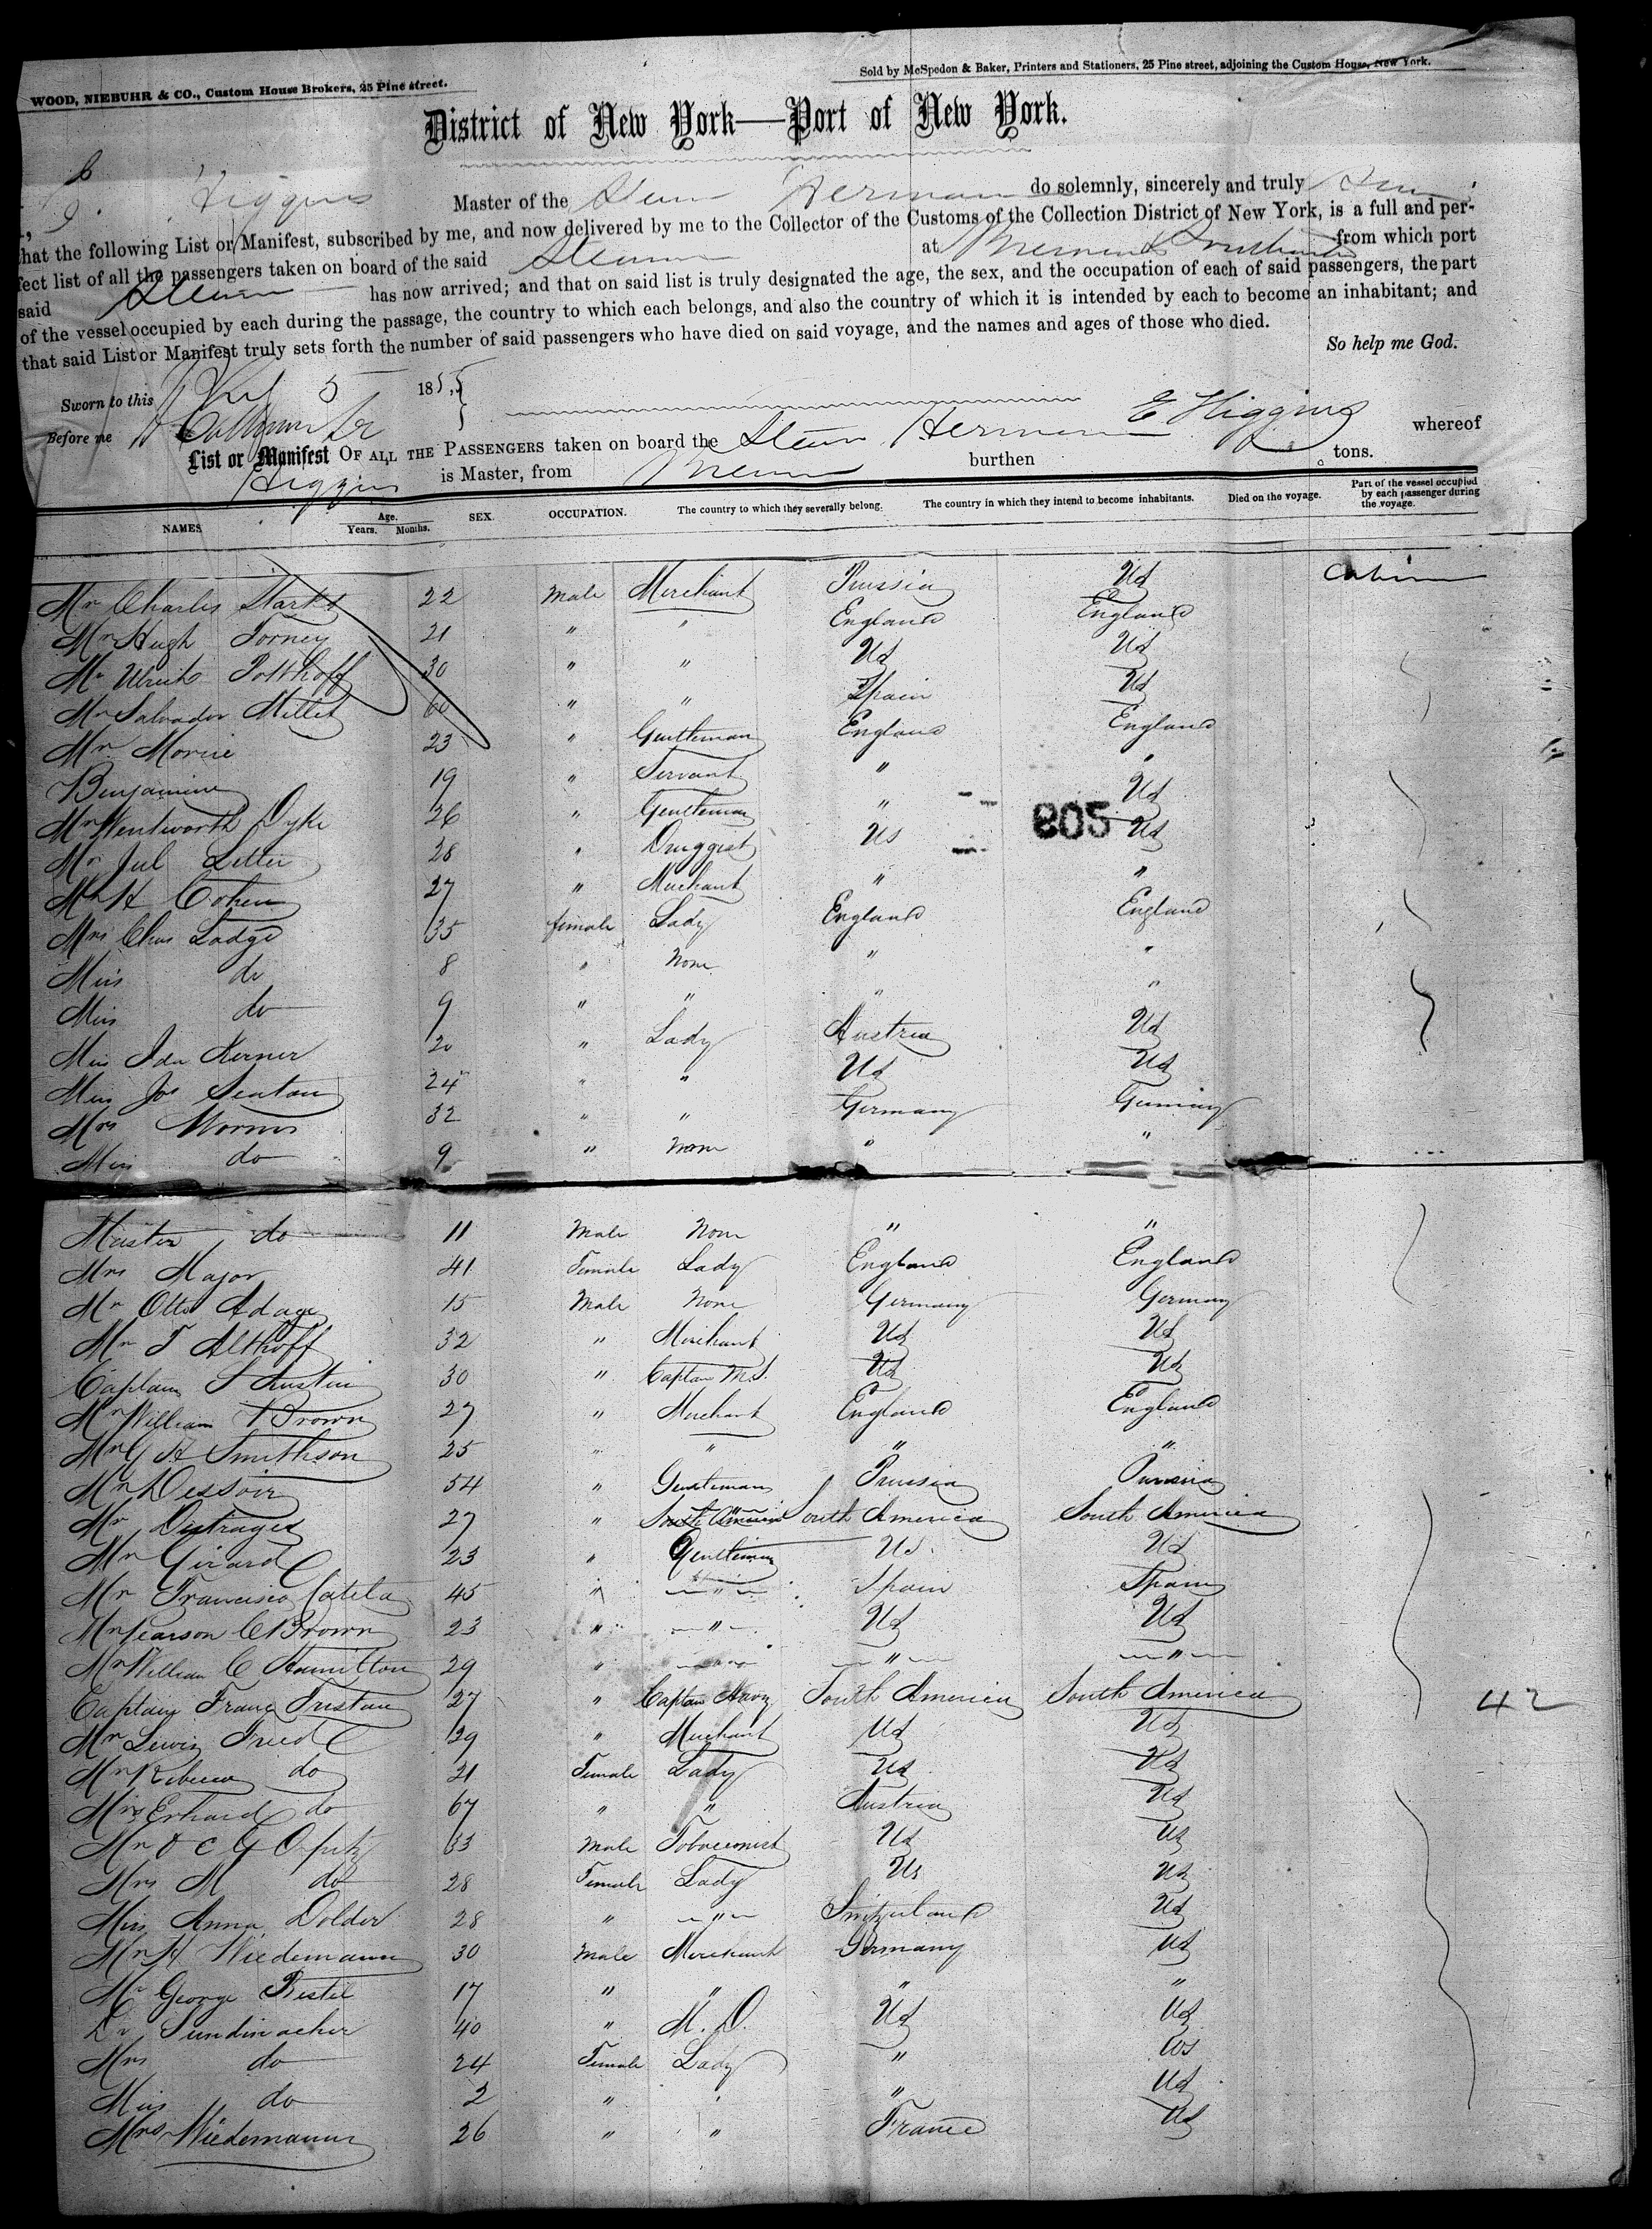 WOOD, NIEBUHR & CO., Custom House Brokers, 25 Pine street.
Sold by McSpedon & Baker, Printers and Stationers, 25 Pine street, adjoining the Custom House, New York.
District of New York—Port of New York.
I, E Higgins Master of the Steam Hermann do solemnly, sincerely and truly
that the following List or Manifest, subscribed by me, and now delivered by me to the Collector of the Customs of the Collection District of New York, is a full and per-
fect list of all the passengers taken on board of the said Steam at Bremen & from which port
said Steam has now arrived; and that on said list is truly designated the age, the sex, and the occupation of each of said passengers, the part
of the vessel occupied by each during the passage, the country to which each belongs, and also the country of which it is intended by each to become an inhabitant; and
that said List or Manifest truly sets forth the number of said passengers who have died on said voyage, and the names and ages of those who died.
So help me God.
Sworn to this 5 1855
Before me E Higgins
List or Manifest OF ALL THE PASSENGERS taken on board the Steam Hermann whereof
Higgins is Master, from Bremen burthen tons.
NAMES Age. Years. Months. SEX. OCCUPATION. The country to which they severally belong. The country in which they intend to become inhabitants. Died on the voyage. Part of the vessel occupied by each passenger during the voyage.
Mr Charles Starks 22 Male Merchant Prussia US Cabin
Mr Hugh Torney 21 " " England England
Mr Ulrich Potthoff 30 " " US US
Mr Salvador Millet 60 " " Spain US
Mr Morice 23 " Gentleman England England
Benjamine 19 " Servant " "
Mr Wentworth Dyke 26 " Gentleman " US
805
Mr Jul Letter 28 " Druggist US US
Mr H Cohen 27 " Merchant " "
Mrs Chas Lodge 35 female Lady England England
Miss do 8 " None " "
Miss do 9 " " " "
Miss Ida Kerner 20 " Lady Austria US
Miss Jos Seaton 24 " " US US
Mrs Worms 32 " " Germany Germany
Miss do 9 " None " "
Master do 11 Male None " "
Mrs Major 41 Female Lady England England
Mr Otto Adage 15 Male None Germany Germany
Mr F Althoff 32 " Merchant US US
Captain S Austin 30 " Captain M.S. US US
Mr William Brown 27 " Merchant England England
Mr G A Smithson 25 " " " "
Mr Dessoir 54 " Gentleman Prussia Prussia
Mr 27 " South America South America South America
Mr Girard 23 " Gentleman US US
Mr Francisco Catila 45 " " Spain Spain
Mr Pearson C Brown 23 " " US US
Mr William C Hamilton 29 " " " "
Captain Franc Tristan 27 " Captain Navy South America South America
42
Mr Lewis Fried 29 " Merchant US US
Mrs Rebecca do 21 Female Lady US US
Mrs Erhard do 67 " " Austria US
Mr O C G Opitz 33 Male Tobacconist US US
Mrs M do 28 Female Lady US US
Miss Anna Dolder 28 " " Switzerland US
Mr H Wiedemann 30 Male Merchant Germany US
Mr George Restel 17 " " " "
Dr Sundmacher 40 " M.D. US US
Mrs do 24 Female Lady " US
Miss do 2 " " " US
Mrs Wiedemann 26 " " France US